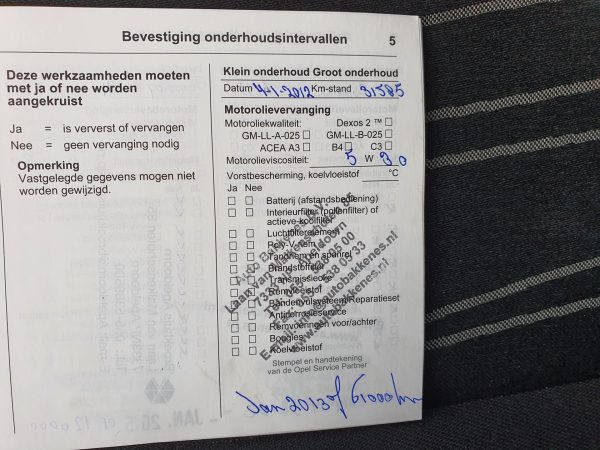 Bevestiging onderhoudsintervallen 5
Deze werkzaamheden moeten
met ja of nee worden
aangekruist
Ja = is ververst of vervangen
Nee = geen vervanging nodig
Opmerking
Vastgelegde gegevens mogen niet
worden gewijzigd.
Klein onderhoud Groot onderhoud
Datum 4-1-2012 Km-stand 31585
Motorolievervanging
Motoroliekwaliteit: Dexos 2 ™ ☐
GM-LL-A-025 ☐ GM-LL-B-025 ☐
ACEA A3 ☐ B4 ☐ C3 ☐
Motorolieviscositeit: 5 W 30
Vorstbescherming, koelvloeistof °C
Ja Nee
☐ ☐ Batterij (afstandsbediening)
☐ ☐ Interieurfilter (pollenfilter) of
actieve-koolfilter
☐ ☐ Luchtfilterelement
☐ ☐ Poly-V-riem
☐ ☐ Tandriem en spanrol
☐ ☐ Brandstoffilter
☐ ☐ Transmissieolie
☐ ☐ Remvloeistof
☐ ☐ Bandenvulsysteem/Reparatieset
☐ ☐ Antidefrosteservice
☐ ☐ Remvoeringen voor/achter
☐ ☐ Bougies
☐ ☐ Koelvloeistof
Laan van
www.autobakkenes.nl
Stempel en handtekening
van de Opel Service Partner
Jan 2013 of 61000 km